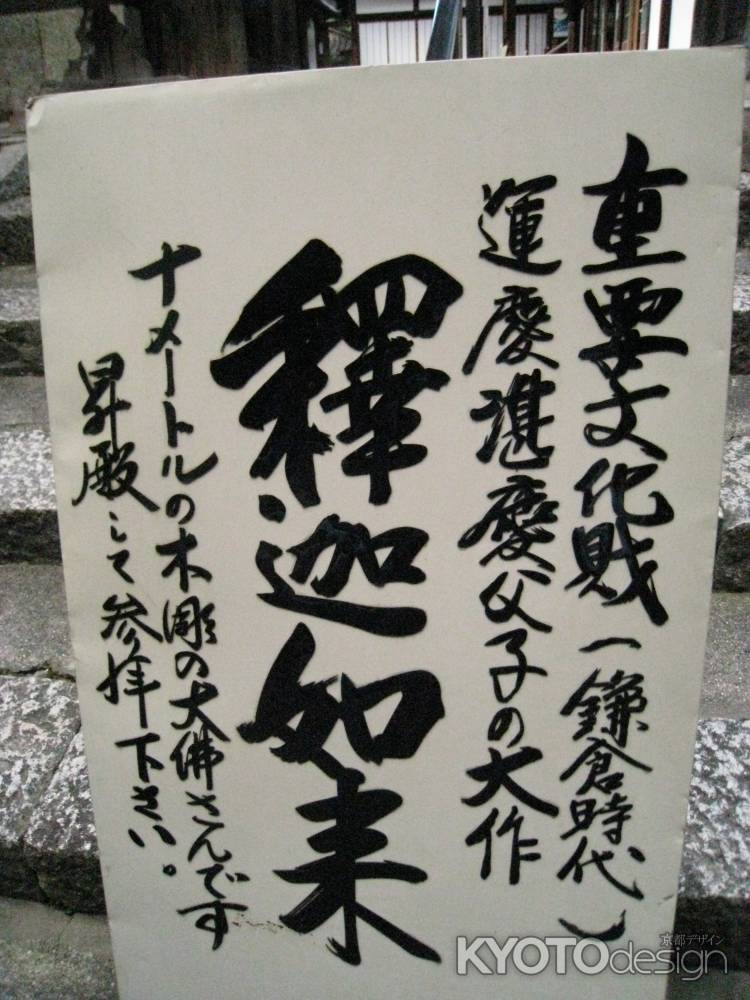 重要文化財(鎌倉時代)
運慶湛慶父子の大作
釋迦如来
十メートルの木彫の大佛さんです
昇殿して参拝下さい。
京都デザイン
KYOTOdesign